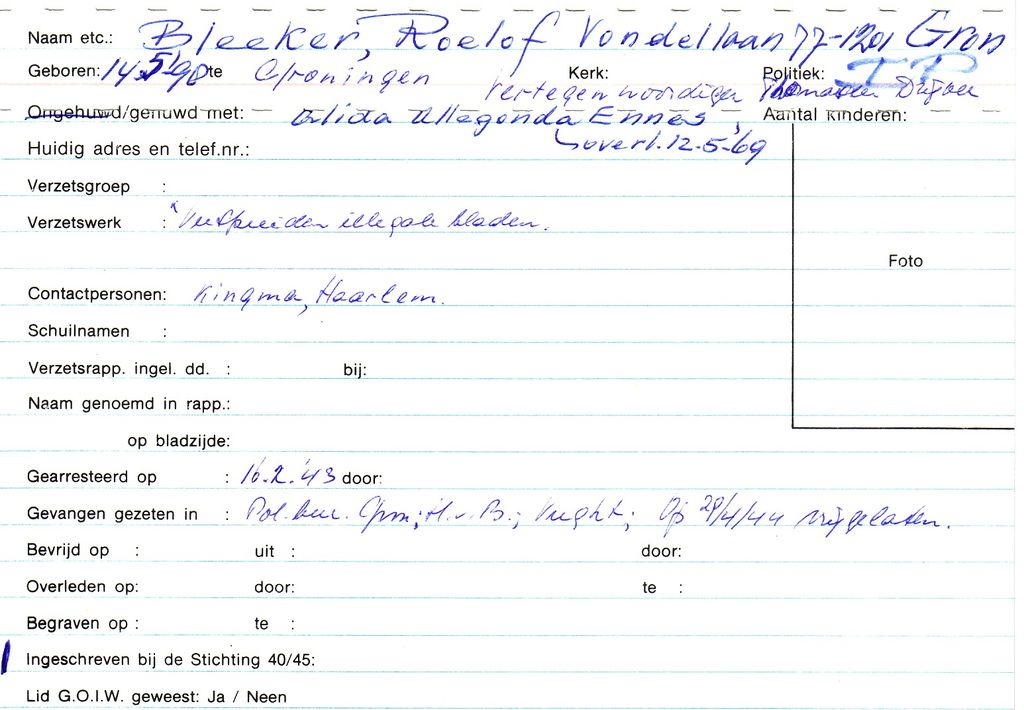 Naam etc.: Bleeker, Roelof Vondellaan 77-1201 Gron
Geboren: 14.5.'90 te Groningen Kerk: Politiek:
Vertegenwoordiger
Ongehuwd/gehuwd met: Alida Allegonda Ennes, Aantal kinderen:
overl. 12-5-'69
Huidig adres en telef.nr.:
Verzetsgroep :
Verzetswerk : Verspreiden illegale bladen.
Foto
Contactpersonen: Kingma, Haarlem.
Schuilnamen :
Verzetsrapp. ingel. dd. : bij:
Naam genoemd in rapp.:
op bladzijde:
Gearresteerd op : 16.2.'43 door:
Gevangen gezeten in : Pol.bur. Gron; H.v.B.; Vught; Op 28/4/44 vrijgelaten.
Bevrijd op : uit : door:
Overleden op: door: te :
Begraven op : te :
Ingeschreven bij de Stichting 40/45:
Lid G.O.I.W. geweest: Ja / Neen